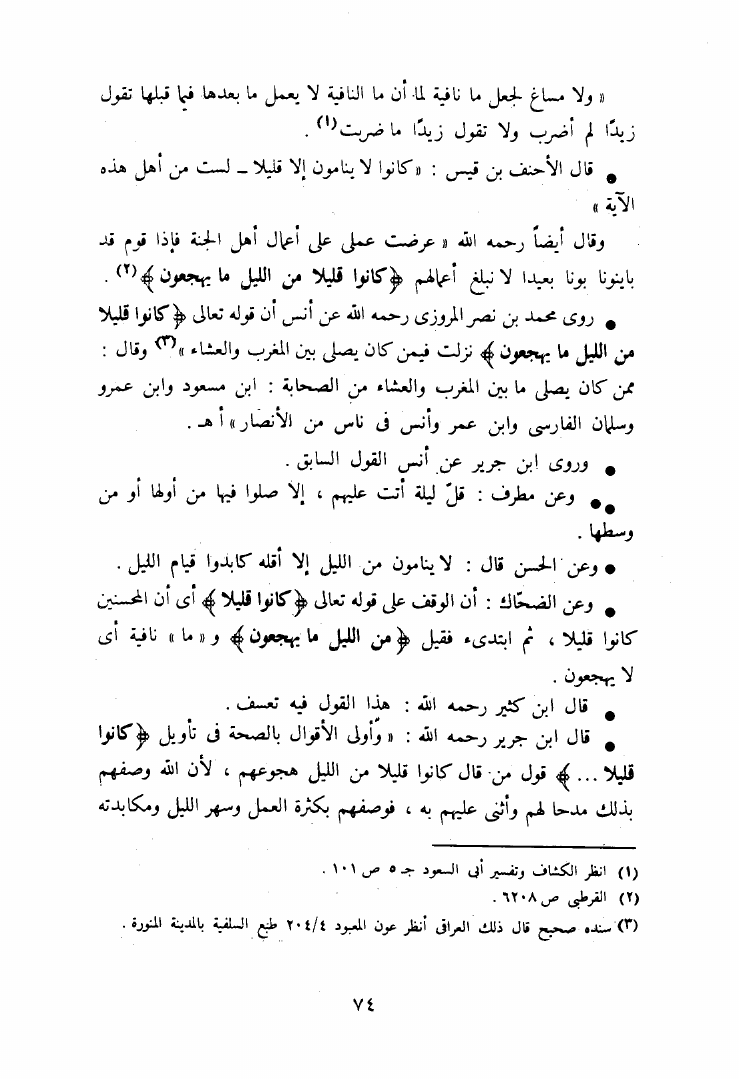 « ولا مساغ لجعل ما نافية لما أن ما النافية لا يعمل ما بعدها فيما قبلها تقول
زيدًا لم أضرب ولا تقول زيدًا ما ضربت(١) .
● قال الأحنف بن قيس : « كانوا لا ينامون إلا قليلا ــ لست من أهل هذه
الآية »
وقال أيضاً رحمه الله « عرضت عملى على أعمال أهل الجنة فإذا قوم قد
باينونا بونا بعيدا لا نبلغ أعمالهم ﴿ كانوا قليلا من الليل ما يهجعون ﴾(٢) .
● روى محمد بن نصر المروزى رحمه الله عن أنس أن قوله تعالى ﴿ كانوا قليلا
من الليل ما يهجعون ﴾ نزلت فيمن كان يصلى بين المغرب والعشاء »(٣) وقال :
ممن كان يصلى ما بين المغرب والعشاء من الصحابة : ابن مسعود وابن عمرو
وسلمان الفارسى وابن عمر وأنس فى ناس من الأنصار » أ هـ .
● وروى ابن جرير عن أنس القول السابق .
●● وعن مطرف : قلّ ليلة أتت عليهم ، إلا صلوا فيها من أولها أو من
وسطها .
● وعن الحسن قال : لا ينامون من الليل إلا أقله كابدوا قيام الليل .
● وعن الضحّاك : أن الوقف على قوله تعالى ﴿ كانوا قليلا ﴾ أى أن المحسنين
كانوا قليلا ، ثم ابتدىء فقيل ﴿ من الليل ما يهجعون ﴾ و « ما » نافية أى
لا يهجعون .
● قال ابن كثير رحمه الله : هذا القول فيه تعسف .
● قال ابن جرير رحمه الله : « وأولى الأقوال بالصحة فى تأويل ﴿ كانوا
قليلا ... ﴾ قول من قال كانوا قليلا من الليل هجوعهم ، لأن الله وصفهم
بذلك مدحا لهم وأثنى عليهم به ، فوصفهم بكثرة العمل وسهر الليل ومكابدته
(١) انظر الكشاف وتفسير أبى السعود جـ ٥ ص ١٠١ .
(٢) القرطبى ص ٦٢٠٨ .
(٣) سنده صحيح قال ذلك العراقى أنظر عون المعبود ٢٠٤/٤ طبع السلفية بالمدينة المنورة .
٧٤